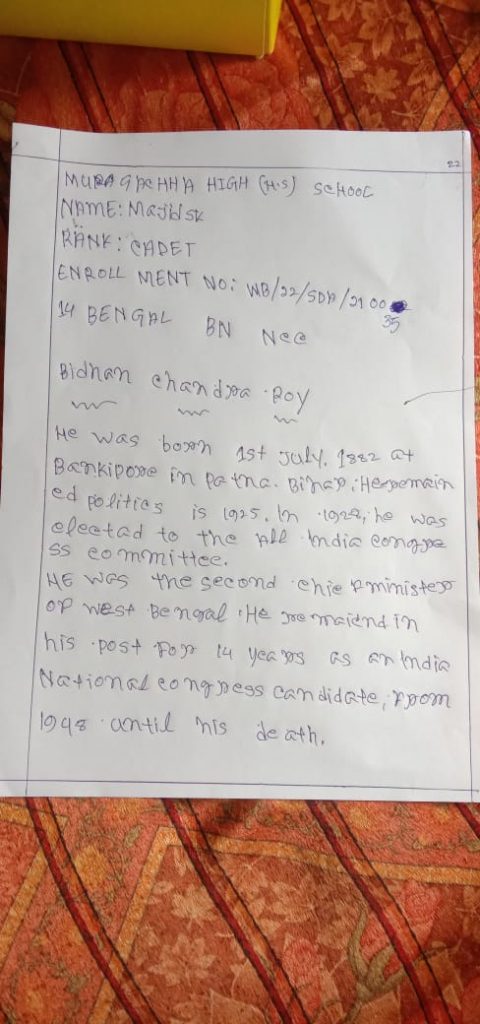 22
MURAGACHHA HIGH (H.S) SCHOOL
NAME: Majbisk
RANK: CADET
ENROLL MENT NO: WB/22/SDA/2100
35
14 BENGAL BN NCC
Bidhan chandra Roy
He was born 1st July. 1882 at
Bankipore in Patna. Bihar. He remain
ed politics is 1925. In 1928, he was
electad to the All India congre
ss committee.
HE was the second chief minister
of west Bengal. He remaiend in
his post for 14 years as an India
National congress candidate, from
1948 until his death.